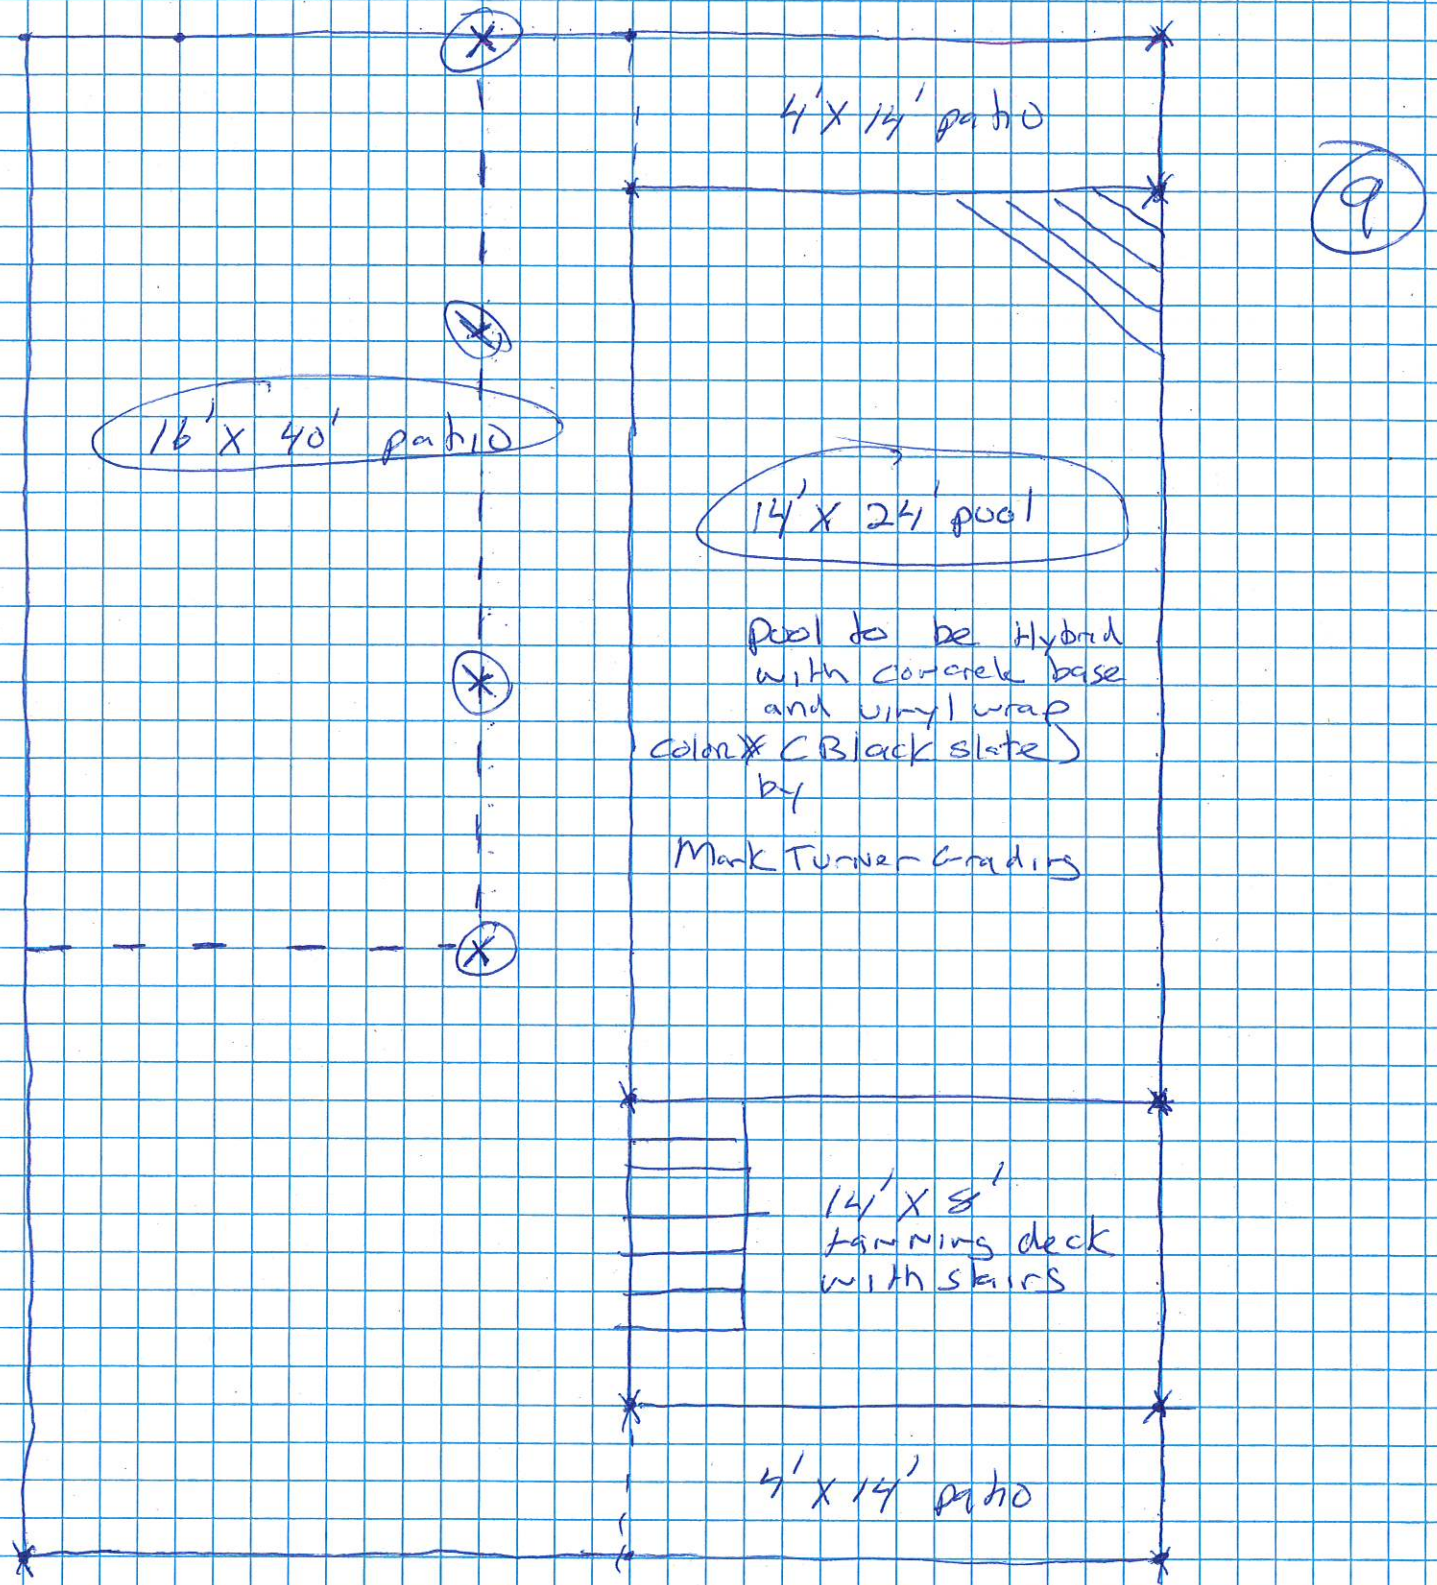 4' X 14' patio
9
16' X 40' patio
14' X 24' pool
pool to be Hybrid
with concrete base
and vinyl wrap
color (Black slate)
by
Mark Turner Grading
14' X 8'
tanning deck
with stairs
4' X 14' patio